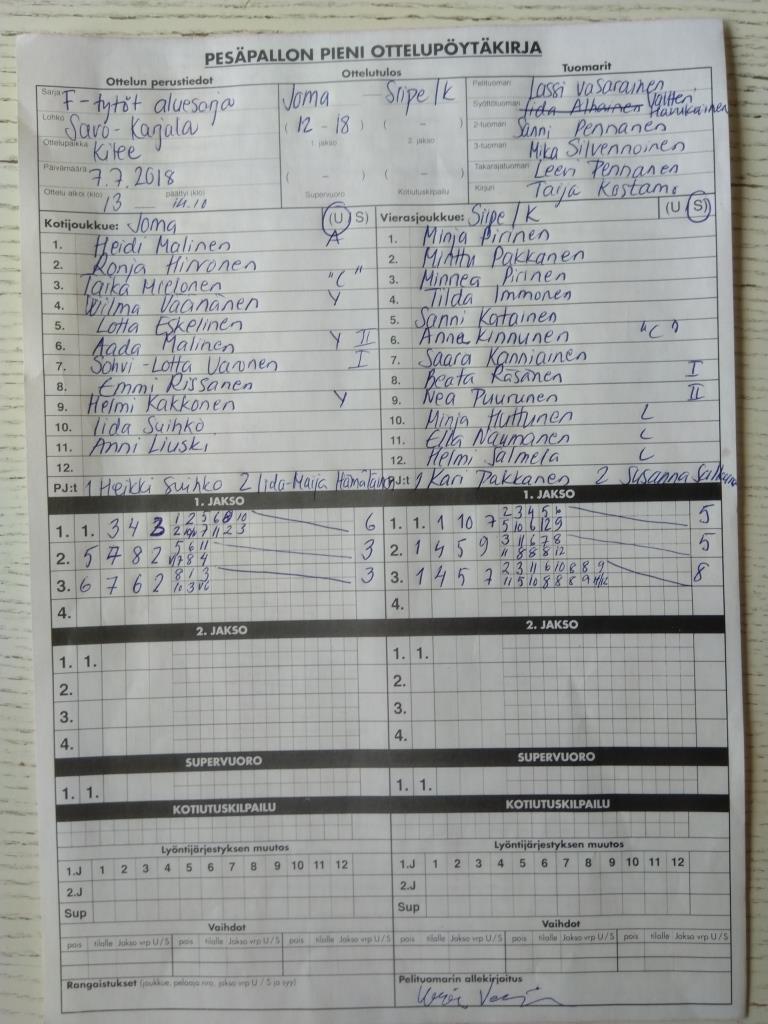 PESÄPALLON PIENI OTTELUPÖYTÄKIRJA
Ottelun perustiedot
Ottelutulos
Tuomarit
Sarja F-tytöt aluesarja
Lohko Savo-Karjala
Ottelupaikka Kitee
Päivämäärä 7.7.2018
Ottelu alkoi (klo) 13 päättyi (klo) 14.10
Joma - Siipe/K
(12 - 18) ( - )
1. jakso 2. jakso
( - ) ( - )
Supervuoro Kotiutuskilpailu
Pelituomari Lassi Vasarainen
Syöttötuomari Iida Alhainen Valtteri Harukainen
2-tuomari Sanni Pennanen
3-tuomari Mika Silvennoinen
Takarajatuomari Leevi Pennanen
Kirjuri Taija Kostamo
Kotijoukkue: Joma (U S)
1. Heidi Malinen A
2. Ronja Hirvonen
3. Taika Mielonen "C"
4. Wilma Väänänen Y
5. Lotta Eskelinen
6. Aada Malinen Y II
7. Sohvi-Lotta Varonen I
8. Emmi Rissanen
9. Helmi Kakkonen Y
10. Iida Suihko
11. Anni Liuski
12.
PJ:t 1 Heikki Suihko 2 Iida-Maija Hämäläinen
Vierasjoukkue: Siipe/K (U S)
1. Minja Pirinen
2. Minttu Pakkanen
3. Minnea Pirinen
4. Tilda Immonen
5. Sanni Katainen
6. Anna Kinnunen "C"
7. Saara Kanniainen
8. Beata Räsänen I
9. Nea Puurunen II
10. Minja Huttunen L
11. Ella Naumanen L
12. Helmi Jalmela L
PJ:t 1 Kari Pakkanen 2 Susanna
1. JAKSO
1. 1. 3 4 3 6
2. 5 7 8 2 5 6 11 3
3. 6 7 6 2 8 1 3 3
4.
1. JAKSO
1. 1. 1 10 7 2 3 4 5 6 5
5 10 6 12 9
2. 1 4 5 9 3 11 6 7 8 5
11 8 8 8 12
3. 1 4 5 7 2 3 11 6 10 8 8 9 8
4.
2. JAKSO
1. 1.
2.
3.
4.
2. JAKSO
1. 1.
2.
3.
4.
SUPERVUORO
1. 1.
SUPERVUORO
1. 1.
KOTIUTUSKILPAILU
KOTIUTUSKILPAILU
Lyöntijärjestyksen muutos
1.J 1 2 3 4 5 6 7 8 9 10 11 12
2.J
Sup
Lyöntijärjestyksen muutos
1.J 1 2 3 4 5 6 7 8 9 10 11 12
2.J
Sup
Vaihdot
pois tilalle Jakso vrp U/S pois tilalle Jakso vrp U/S pois tilalle Jakso vrp U/S
Vaihdot
pois tilalle Jakso vrp U/S pois tilalle Jakso vrp U/S pois tilalle Jakso vrp U/S
Rangaistukset (joukkue, pelaaja nro, jakso vrp U/S ja syy)
Pelituomarin allekirjoitus